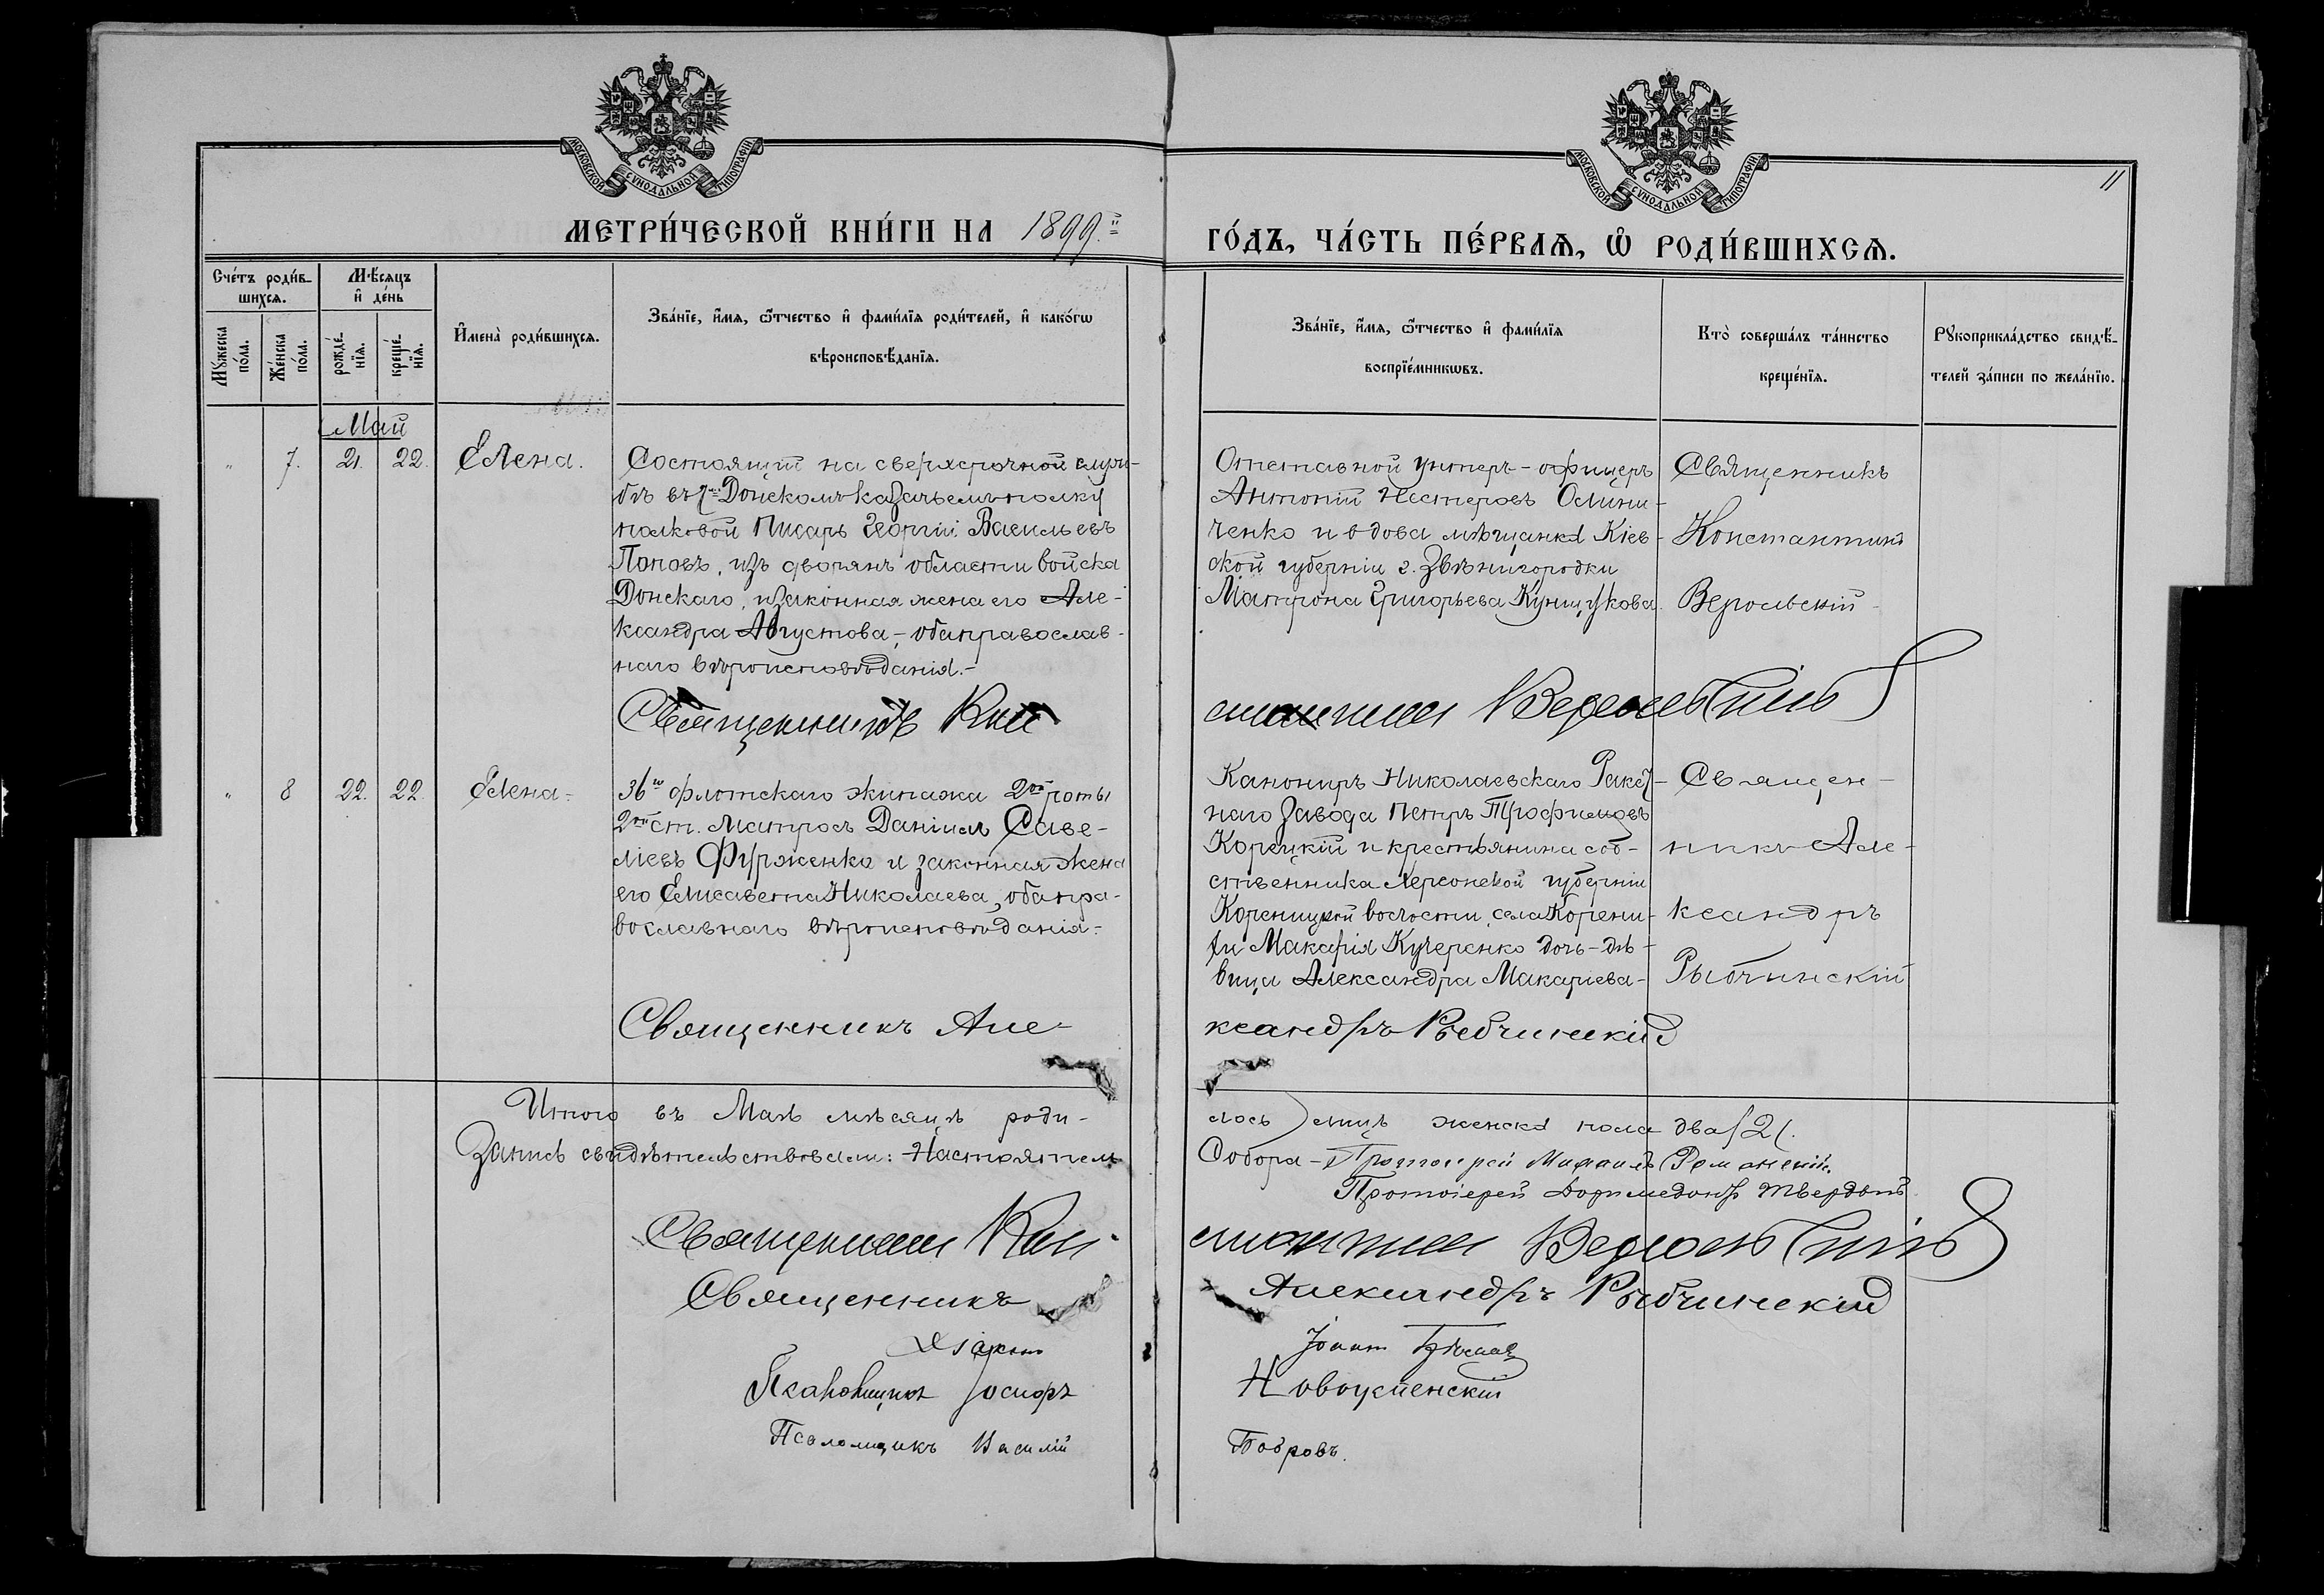 МОСКОВСКОЙ СѴНОДАЛЬНОЙ ТИПОГРАФІИ
МОСКОВСКОЙ СѴНОДАЛЬНОЙ ТИПОГРАФІИ
11
МЕТРИ́ЧЕСКОЙ КНИ́ГИ НА 1899.й
ГО́ДЪ, ЧА́СТЬ ПЕ́РВАѦ, Ѡ҆ РОДИ́ВШИХСѦ.
Сче́тъ роди́в-
шихсѧ.
Мѣ́сѧцъ
и҆ де́нь
Мꙋ́жеска по́ла.
Же́нска по́ла.
рожде́-
нїѧ.
креще́-
нїѧ.
И҆мена̀ роди́вшихсѧ.
Зва́нїе, и҆́мѧ, ѻ҆́тчество и҆ фами́лїѧ роди́телей, и҆ како́гѡ
вѣроисповѣ́данїѧ.
Зва́нїе, и҆́мѧ, ѻ҆́тчество и҆ фами́лїѧ
воспрїе́мникѡвъ.
Кто̀ соверша́лъ та́инство
креще́нїѧ.
Рꙋкоприкла́дство свидѣ́-
телей за́писи по жела́нїю.
Май
" 7. 21. 22. Елена.
Состоящій на сверхсрочной служ-
бѣ въ 7мъ Донскомъ казачьемъ полку
полковой писарь Георгій Васильевъ
Поповъ, изъ дворянъ области войска
Донскаго, и законная жена его Але-
ксандра Августова, - оба православ-
наго вѣроисповѣданія.-
Отставной унтеръ-офицеръ
Антоній Нестеровъ Осини-
ченко и вдова мѣщанка Кіев-
ской губерніи г. Звѣнигородки
Матрона Григорьева
Священникъ
Константинъ
Верольскій
Священникъ Кон
стантинъ Верольскій
" 8 22. 22. Елена.
36го флотскаго экипажа 2ой роты
2ой ст. матросъ Даніилъ Саве-
ліевъ Фурженко и законная жена
его Елисавета Николаева, оба пра-
вославнаго вѣроисповѣданія.
Канониръ Николаевскаго Ракет-
наго завода Петръ Трофимовъ
Корецкій и крестьянина соб-
ственника Херсонской губерніи
волости, села
Макарія Кучеренко дочь-дѣ-
вица Александра Макаріева-
Священ-
никъ Але-
ксандръ
Рыбчинскій
Священникъ Але-
ксандръ Рыбчинскій
Итого въ Маѣ мѣсяцѣ роди-
лось лицъ женска пола два (2).
Запись свидѣтельствовали: Настоятель
Собора - Протоіерей Михаилъ Романскій.
Протоіерей Доримедонтъ Твердый
Священникъ Кон-
стантинъ Верольскій
Священникъ
Александръ Рыбчинскій
Діаконъ
Іоаннъ
Псаломщикъ Іосифъ
Новоуспенскій
Псаломщикъ Василій
Бобровъ.